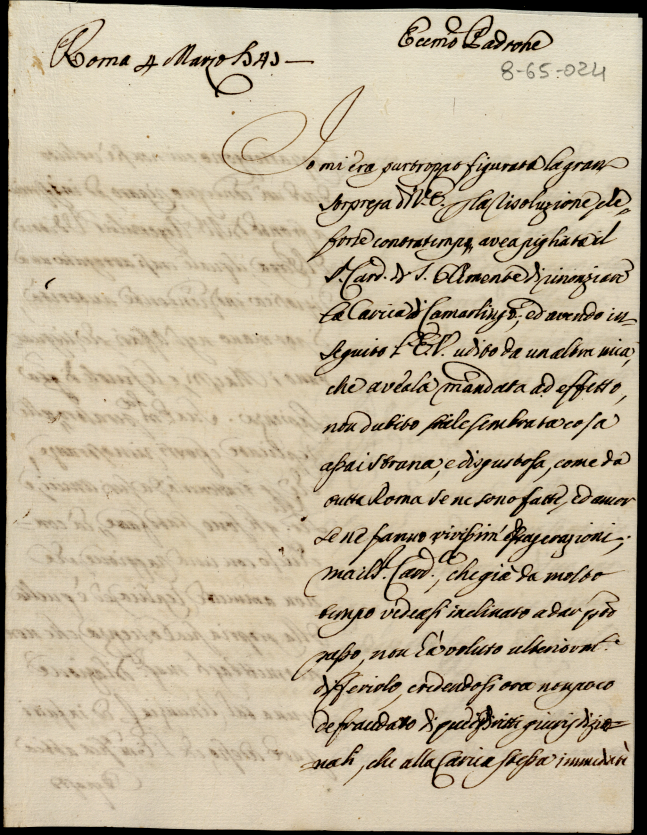 Eccmo Padrone
Roma 4 Marzo
8-65-024
Io mi era purtroppo figurata la gran
sorpresa di V.E. la risoluzione che
forte contratempo avea pigliata il
S.r Card. di S. Clemente di rinonziare
la Carica di Camarlingo, ed avendo in=
seguito l'E.V. udito da un altra mia,
che aveala mandata ad effetto,
non dubito sembrata cosa
assai strana, e disgustosa, come da
tutta Roma se ne sono fatte, ed ancor
se ne fanno vivissim' esagerazioni;
ma il S.r Card.le, che già da molto
tempo vedeasi inclinato a dar
passo, non hà voluto ulteriorm.te
differirlo, credendosi ora non poco
defraudato di que' dritti giurisdizio=
nali, che alla Carica stessa